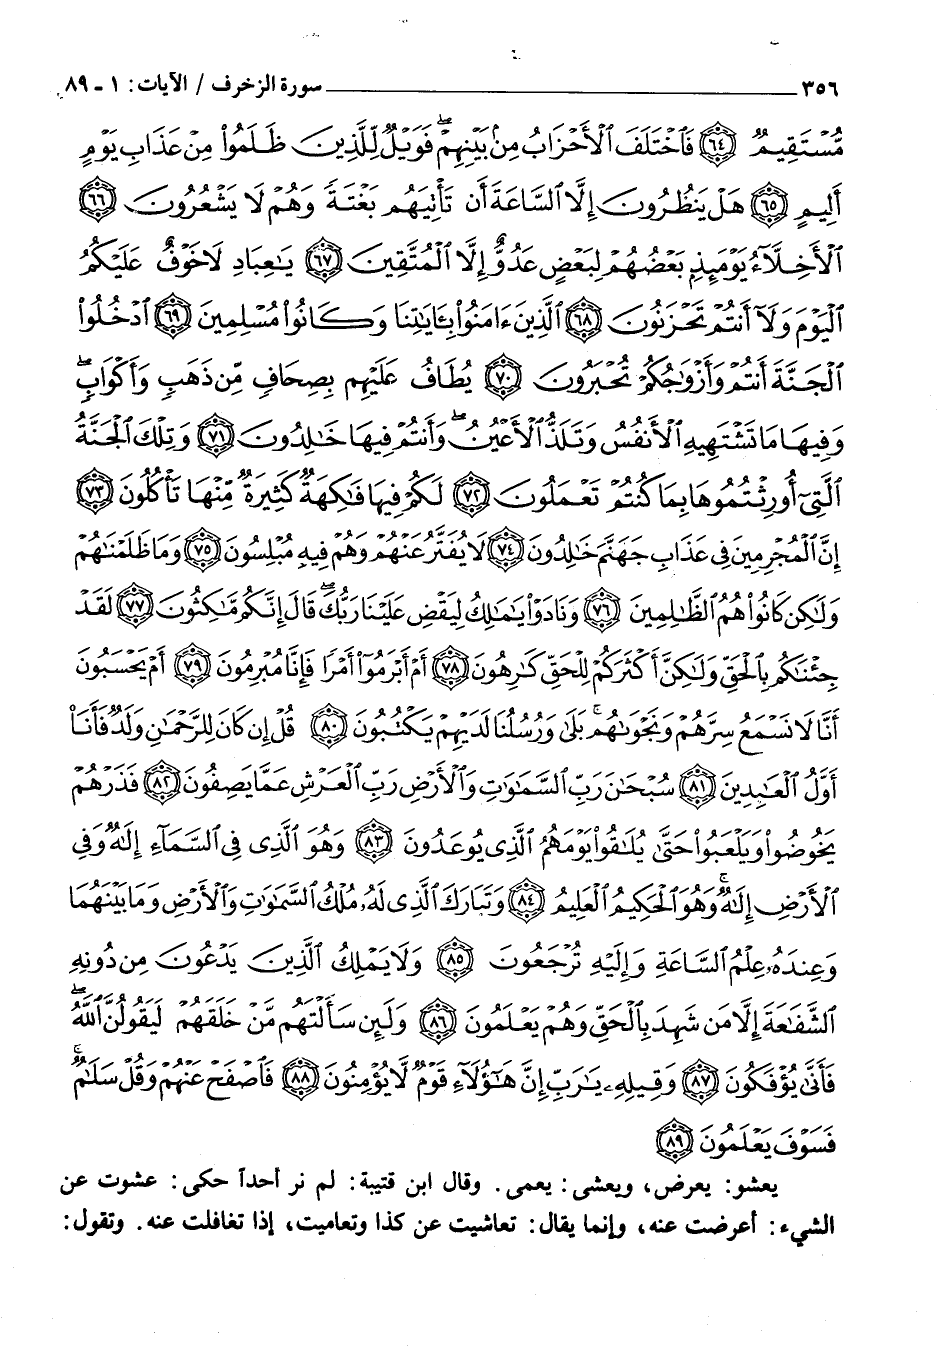 ٣٥٦ سورة الزخرف / الآيات: ١ - ٨٩
مُّسْتَقِيمٌ ﴿٦٤﴾ فَاخْتَلَفَ الْأَحْزَابُ مِنْ بَيْنِهِمْ ۖ فَوَيْلٌ لِّلَّذِينَ ظَلَمُوا۟ مِنْ عَذَابِ يَوْمٍ
أَلِيمٍ ﴿٦٥﴾ هَلْ يَنظُرُونَ إِلَّا السَّاعَةَ أَن تَأْتِيَهُم بَغْتَةً وَهُمْ لَا يَشْعُرُونَ ﴿٦٦﴾
الْأَخِلَّاءُ يَوْمَئِذٍ بَعْضُهُمْ لِبَعْضٍ عَدُوٌّ إِلَّا الْمُتَّقِينَ ﴿٦٧﴾ يَٰعِبَادِ لَا خَوْفٌ عَلَيْكُمُ
الْيَوْمَ وَلَآ أَنتُمْ تَحْزَنُونَ ﴿٦٨﴾ الَّذِينَ ءَامَنُوا۟ بِـَٔايَٰتِنَا وَكَانُوا۟ مُسْلِمِينَ ﴿٦٩﴾ ادْخُلُوا۟
الْجَنَّةَ أَنتُمْ وَأَزْوَٰجُكُمْ تُحْبَرُونَ ﴿٧٠﴾ يُطَافُ عَلَيْهِم بِصِحَافٍ مِّن ذَهَبٍ وَأَكْوَابٍ ۖ
وَفِيهَا مَا تَشْتَهِيهِ الْأَنفُسُ وَتَلَذُّ الْأَعْيُنُ ۖ وَأَنتُمْ فِيهَا خَٰلِدُونَ ﴿٧١﴾ وَتِلْكَ الْجَنَّةُ
الَّتِيٓ أُورِثْتُمُوهَا بِمَا كُنتُمْ تَعْمَلُونَ ﴿٧٢﴾ لَكُمْ فِيهَا فَٰكِهَةٌ كَثِيرَةٌ مِّنْهَا تَأْكُلُونَ ﴿٧٣﴾
إِنَّ الْمُجْرِمِينَ فِي عَذَابِ جَهَنَّمَ خَٰلِدُونَ ﴿٧٤﴾ لَا يُفَتَّرُ عَنْهُمْ وَهُمْ فِيهِ مُبْلِسُونَ ﴿٧٥﴾ وَمَا ظَلَمْنَٰهُمْ
وَلَٰكِن كَانُوا۟ هُمُ الظَّٰلِمِينَ ﴿٧٦﴾ وَنَادَوْا۟ يَٰمَٰلِكُ لِيَقْضِ عَلَيْنَا رَبُّكَ ۖ قَالَ إِنَّكُم مَّٰكِثُونَ ﴿٧٧﴾ لَقَدْ
جِئْنَٰكُم بِالْحَقِّ وَلَٰكِنَّ أَكْثَرَكُمْ لِلْحَقِّ كَٰرِهُونَ ﴿٧٨﴾ أَمْ أَبْرَمُوٓا۟ أَمْرًا فَإِنَّا مُبْرِمُونَ ﴿٧٩﴾ أَمْ يَحْسَبُونَ
أَنَّا لَا نَسْمَعُ سِرَّهُمْ وَنَجْوَىٰهُم ۚ بَلَىٰ وَرُسُلُنَا لَدَيْهِمْ يَكْتُبُونَ ﴿٨٠﴾ قُلْ إِن كَانَ لِلرَّحْمَٰنِ وَلَدٌ فَأَنَا۠
أَوَّلُ الْعَٰبِدِينَ ﴿٨١﴾ سُبْحَٰنَ رَبِّ السَّمَٰوَٰتِ وَالْأَرْضِ رَبِّ الْعَرْشِ عَمَّا يَصِفُونَ ﴿٨٢﴾ فَذَرْهُمْ
يَخُوضُوا۟ وَيَلْعَبُوا۟ حَتَّىٰ يُلَٰقُوا۟ يَوْمَهُمُ الَّذِي يُوعَدُونَ ﴿٨٣﴾ وَهُوَ الَّذِي فِي السَّمَآءِ إِلَٰهٌ وَفِي
الْأَرْضِ إِلَٰهٌ ۚ وَهُوَ الْحَكِيمُ الْعَلِيمُ ﴿٨٤﴾ وَتَبَارَكَ الَّذِي لَهُۥ مُلْكُ السَّمَٰوَٰتِ وَالْأَرْضِ وَمَا بَيْنَهُمَا
وَعِندَهُۥ عِلْمُ السَّاعَةِ وَإِلَيْهِ تُرْجَعُونَ ﴿٨٥﴾ وَلَا يَمْلِكُ الَّذِينَ يَدْعُونَ مِن دُونِهِ
الشَّفَٰعَةَ إِلَّا مَن شَهِدَ بِالْحَقِّ وَهُمْ يَعْلَمُونَ ﴿٨٦﴾ وَلَئِن سَأَلْتَهُم مَّنْ خَلَقَهُمْ لَيَقُولُنَّ اللَّهُ ۖ
فَأَنَّىٰ يُؤْفَكُونَ ﴿٨٧﴾ وَقِيلِهِۦ يَٰرَبِّ إِنَّ هَٰٓؤُلَآءِ قَوْمٌ لَّا يُؤْمِنُونَ ﴿٨٨﴾ فَاصْفَحْ عَنْهُمْ وَقُلْ سَلَٰمٌ ۚ
فَسَوْفَ يَعْلَمُونَ ﴿٨٩﴾
يعشو: يعرض، ويعشى: يعمى. وقال ابن قتيبة: لم نر أحداً حكى: عشوت عن
الشيء: أعرضت عنه، وإنما يقال: تعاشيت عن كذا وتعاميت، إذا تغافلت عنه. وتقول: